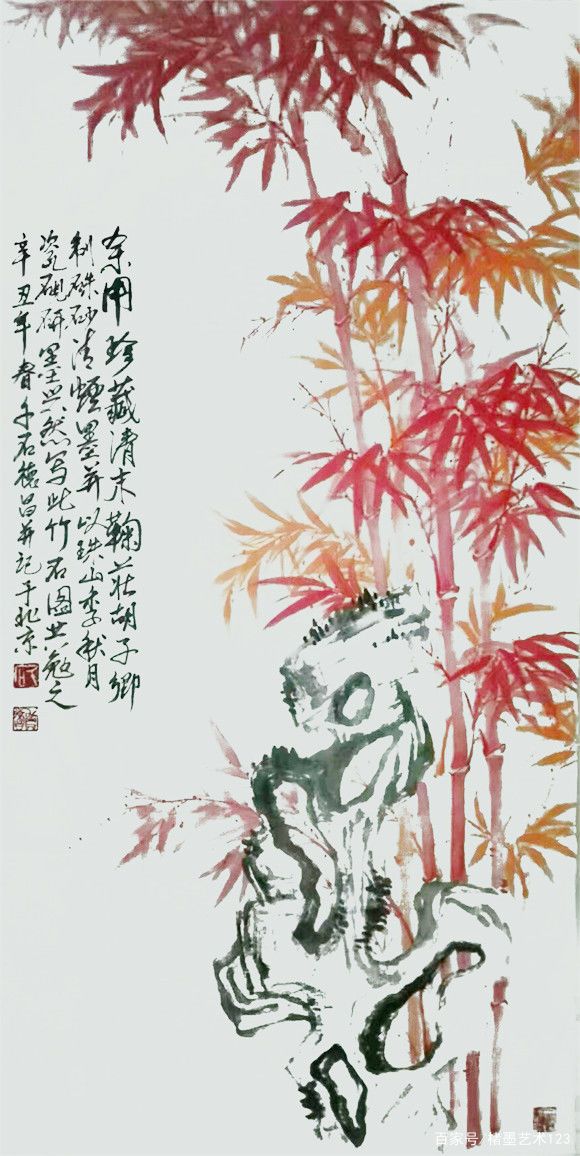 余用珍藏清末鞠庄胡子卿
制硃砂清烟墨并以珠山李秋月
瓷砚研墨兴然写此竹石图共勉之
辛丑年春千石德昌并记于北京
百家号/楮墨艺术123